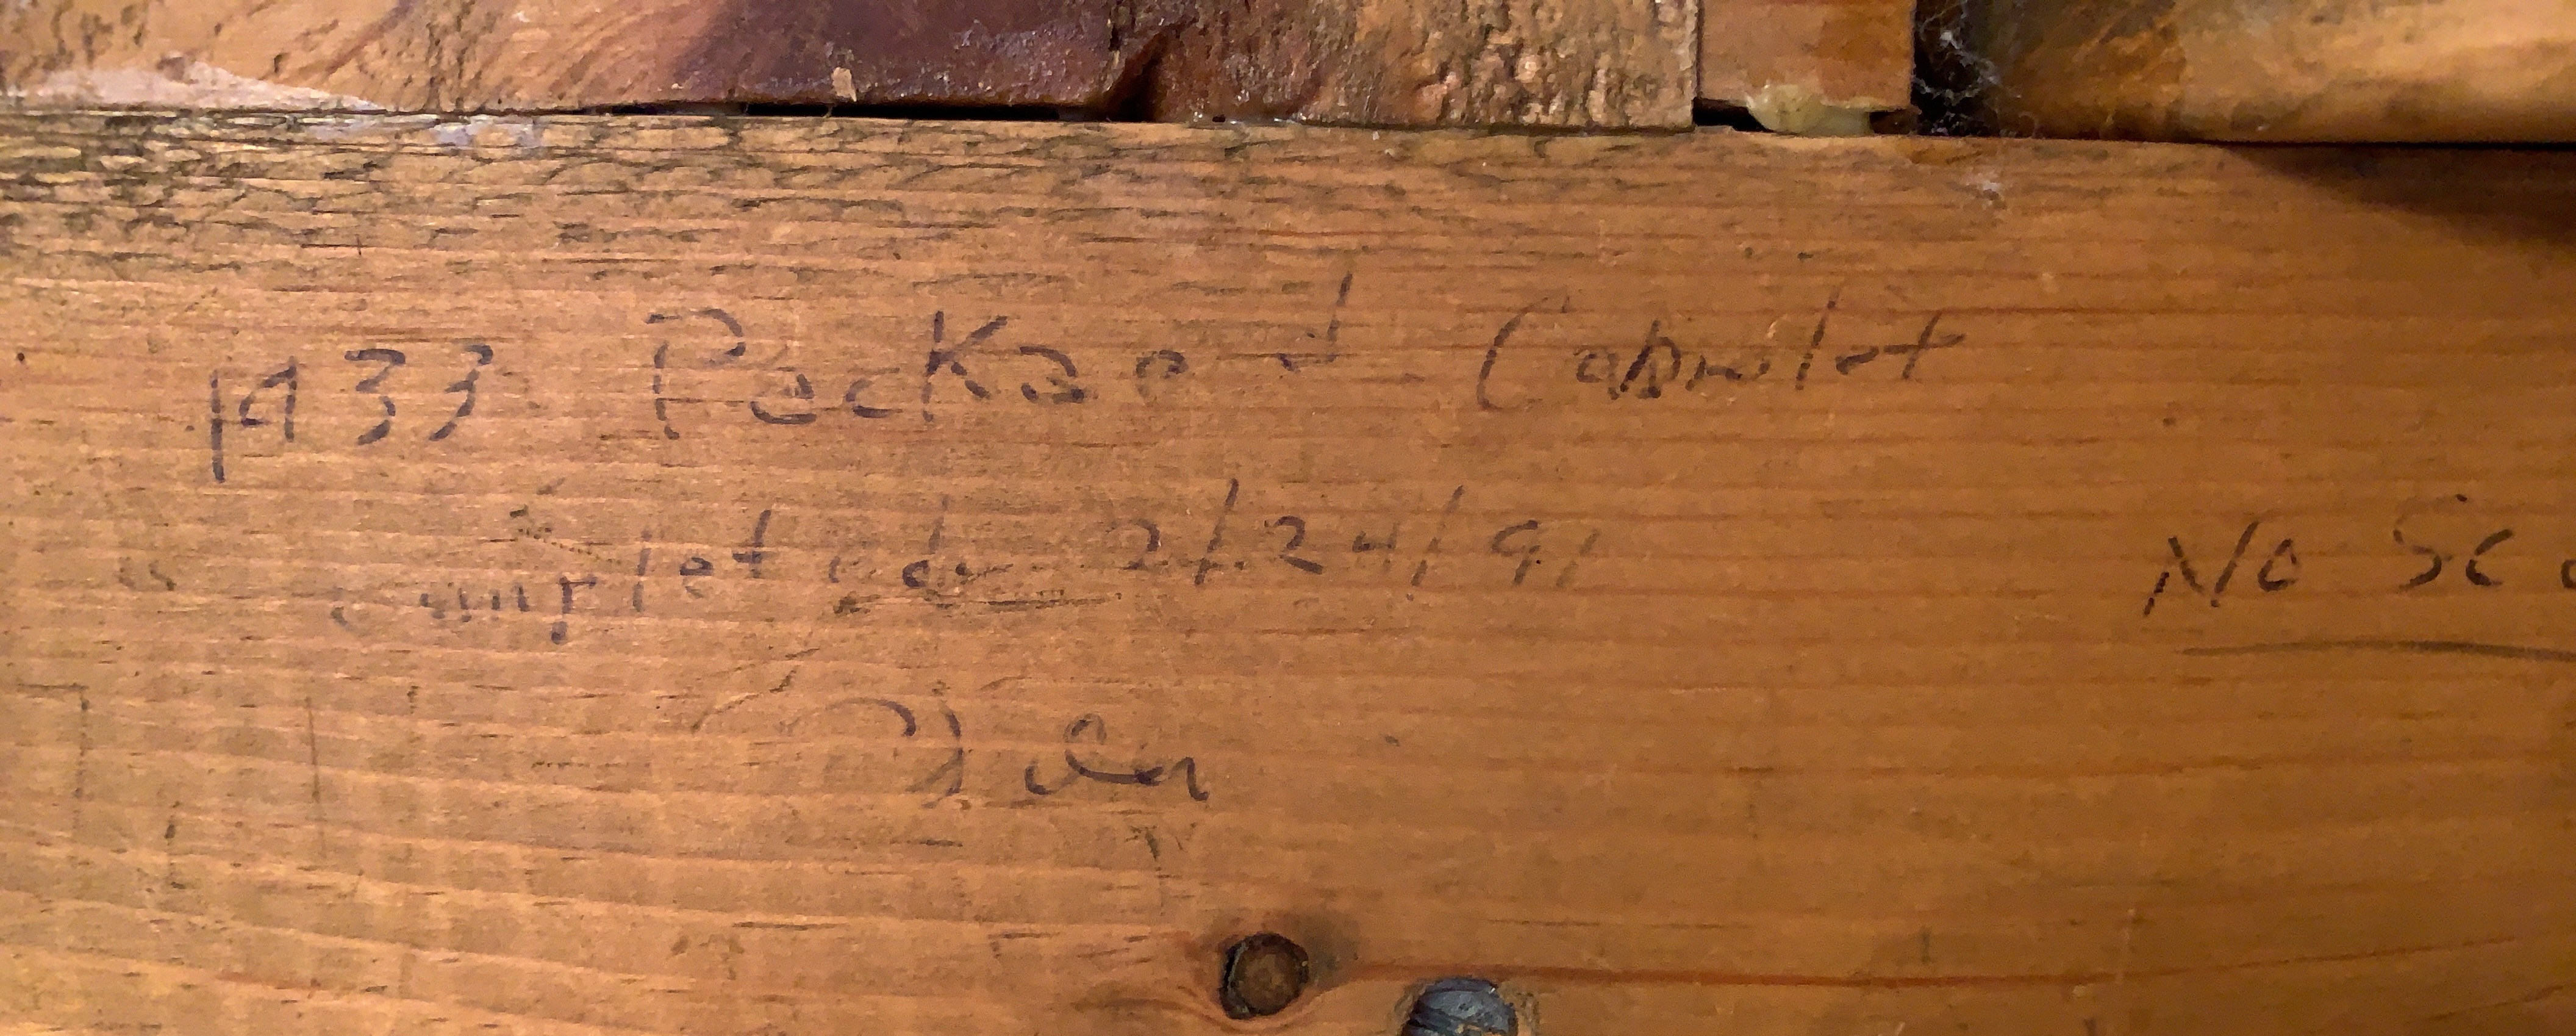 1933 Packard Cabrolet
Completed 2/24/91
No